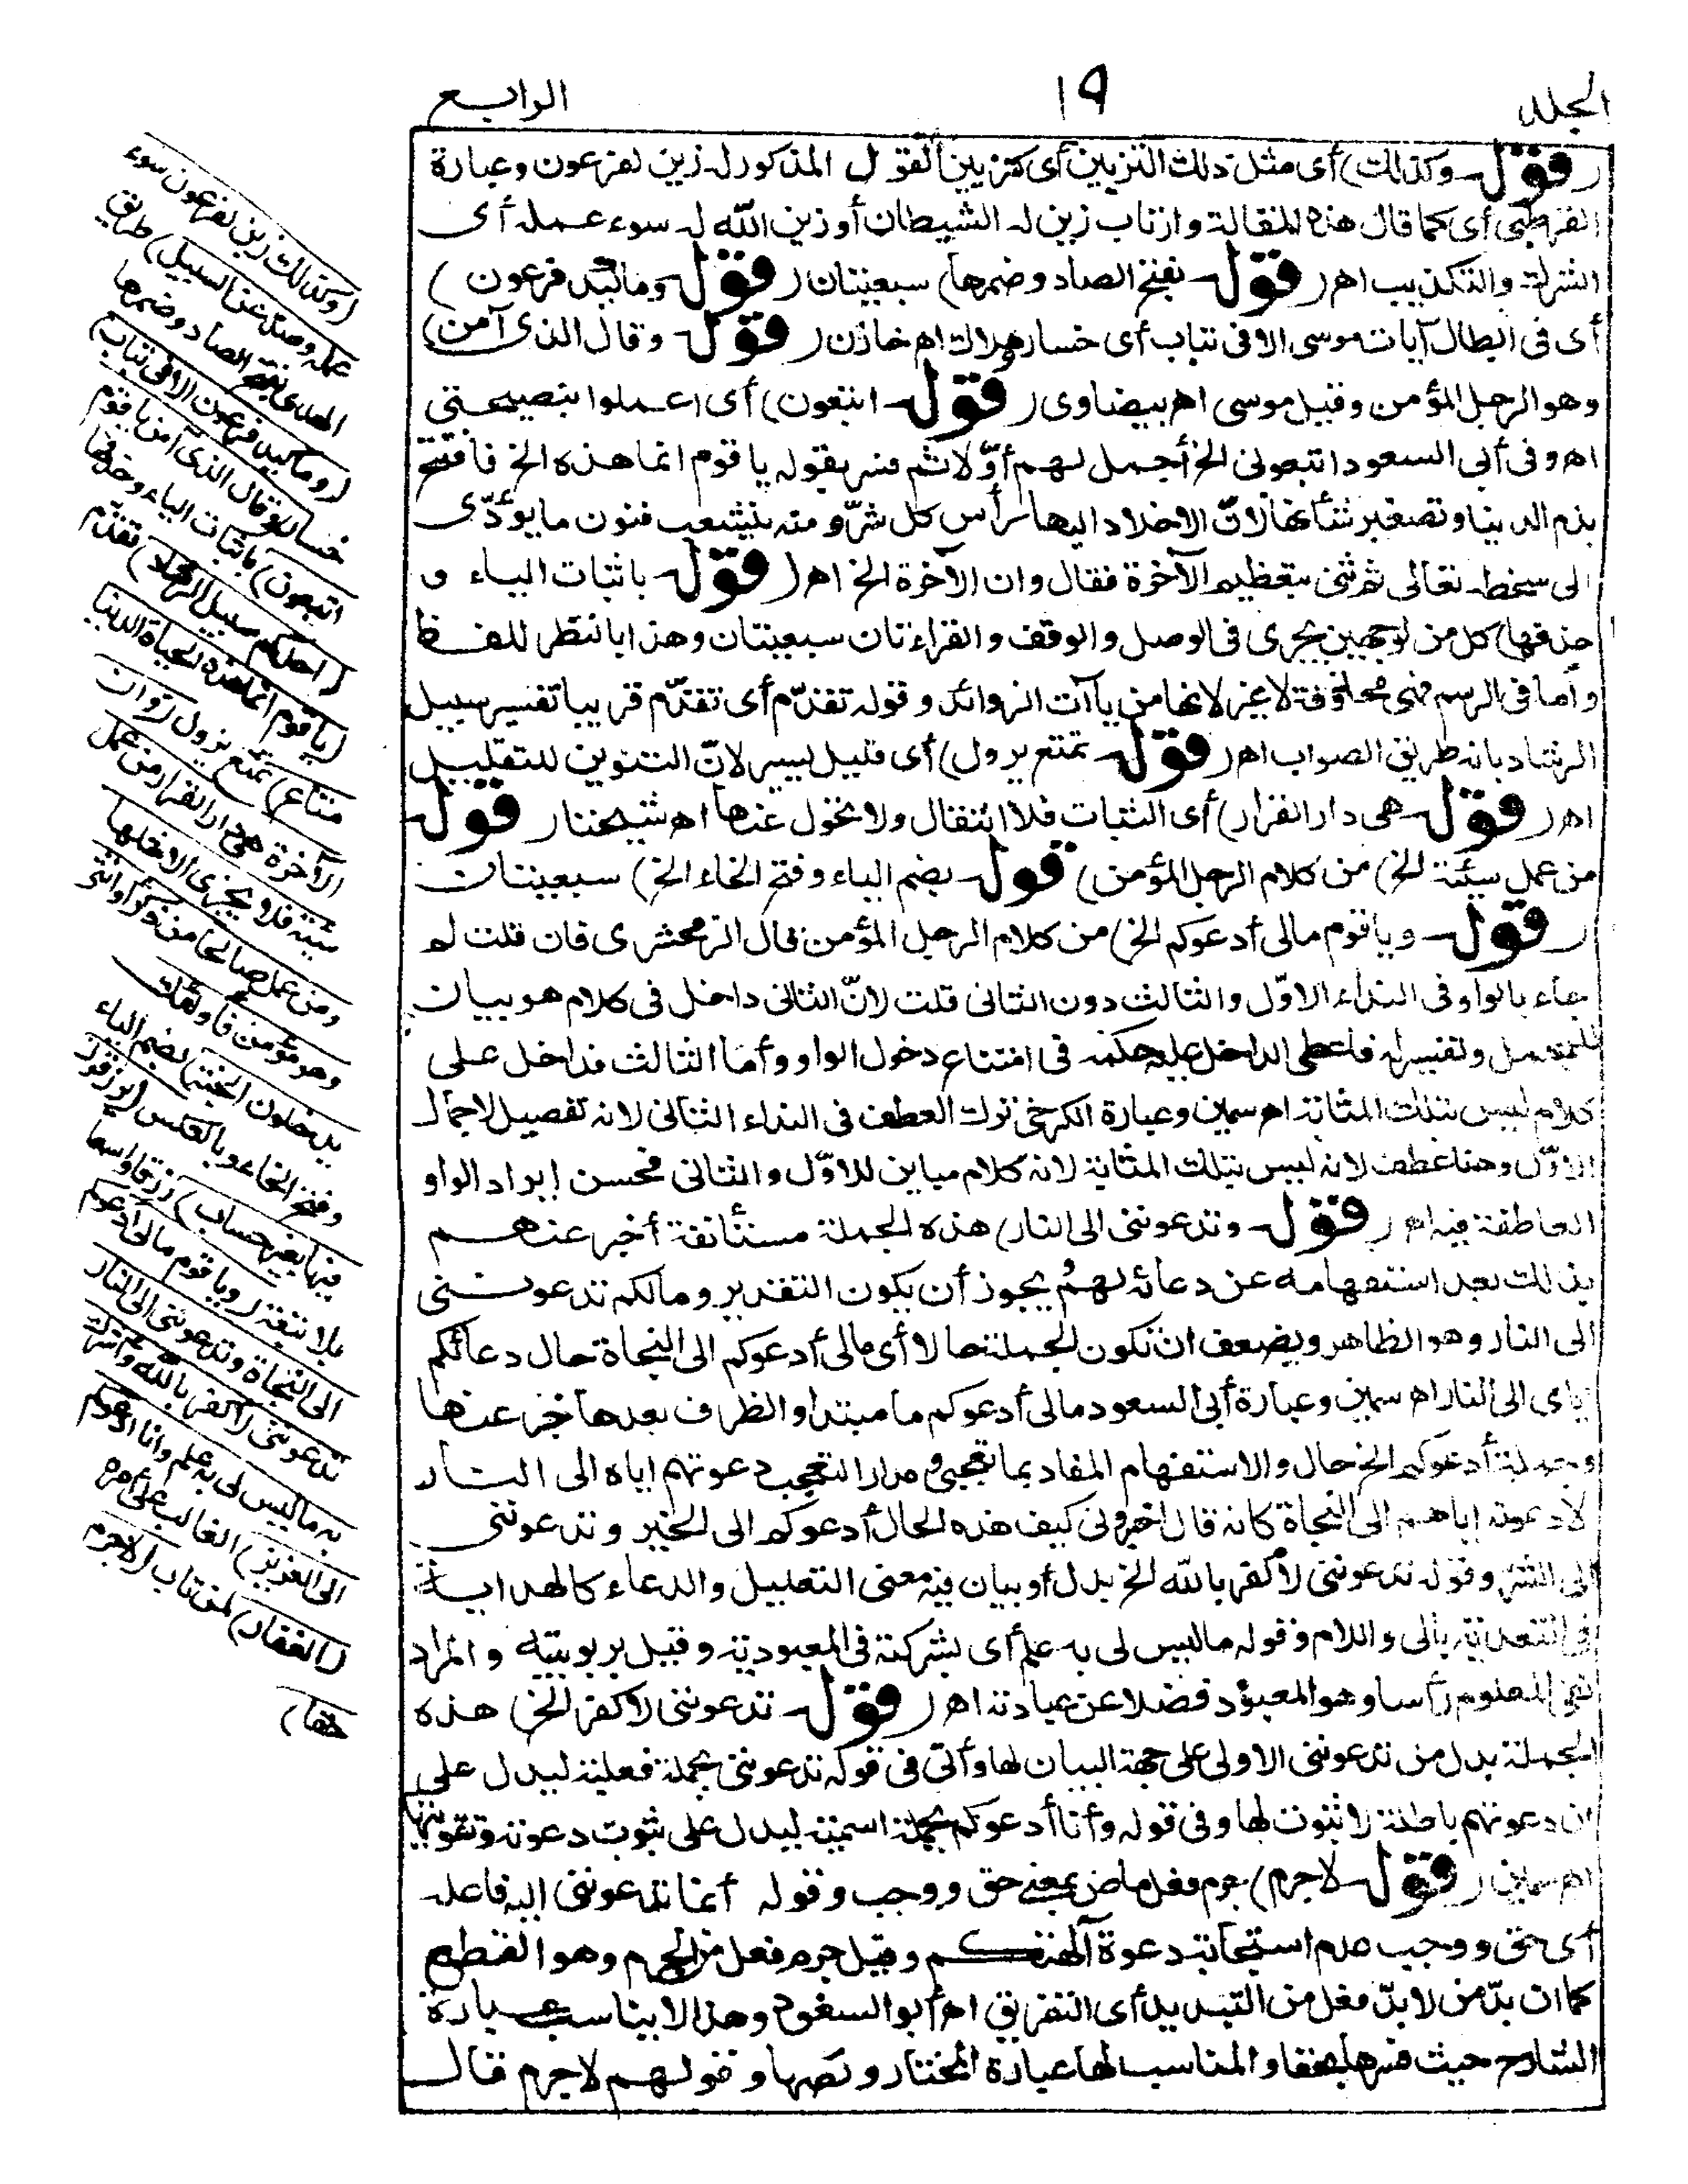 المجلد ١٩ الرابع
(قوله وكذلك) أى مثل ذلك التزيين أى كتزيين القول المذكور له زين لفرعون وعبارة
القرطبى أى كما قال هذه المقالة وارتاب زين له الشيطان أو زين الله له سوء عمله أى
الشرك والتكذيب اهـ (قوله بفتح الصاد وضمها) سبعيتان (قوله وما كيد فرعون)
أى فى ابطال آيات موسى الا فى تباب أى خسار وهلاك اهـ خازن (قوله وقال الذى آمن)
وهو الرجل المؤمن وقيل موسى اهـ بيضاوى (قوله اتبعون) أى اعملوا بنصيحتى
اهـ وفى أبى السعود اتبعونى الخ أجمل لهم أوّلا ثم فسر بقوله يا قوم انما هذه الخ فافتتح
بذم الدنيا وتصغير شأنها لانّ الاخلاد اليها رأس كل شرّ ومنه يتشعب فنون ما يؤدّى
الى سخطه تعالى ثم ثنى بتعظيم الآخرة فقال وان الآخرة الخ اهـ (قوله باثبات الياء و
حذفها) كل من الوجهين يجرى فى الوصل والوقف والقراءتان سبعيتان وهذا بالنظر للفظ
وأما فى الرسم فهى محذوفة لا غير لانها من يا آت الزوائد وقوله تقدّم أى تقدّم قريبا تفسير سبيل
الرشاد بانه طريق الصواب اهـ (قوله تمتع يزول) أى قليل يسير لانّ التنوين للتقليل
اهـ (قوله هى دار القرار) أى الثبات فلا انتقال ولا تحول عنها اهـ شيخنا (قوله
من عمل سيئة الخ) من كلام الرجل المؤمن (قوله بضم الياء وفتح الخاء الخ) سبعيتان
(قوله ويا قوم مالى أدعوكم الخ) من كلام الرجل المؤمن قال الزمخشرى فان قلت لم
جاء بالواو فى النداء الاوّل والثالث دون الثانى قلت لانّ الثانى داخل فى كلام هو بيان
للمجمل وتفسير له فاعطى الداخل عليه حكمه فى امتناع دخول الواو وأما الثالث فداخل على
كلام ليس بتلك المثابة اهـ سمين وعبارة الكرخى ترك العطف فى النداء الثانى لانه تفصيل لاجمال
الاوّل وهنا عطف لانه ليس بتلك المثابة لانه كلام مباين للاوّل والثانى فحسن ايراد الواو
العاطفة فيه اهـ (قوله وتدعوننى الى النار) هذه الجملة مستأنفة أخبر عنهم
بذلك بعد استفهامه عن دعائه لهم يجوز أن يكون التقدير ومالكم تدعوننى
الى النار وهو الظاهر ويضعف ان تكون الجملة حالا أى مالى أدعوكم الى النجاة حال دعائكم
اياى الى النار اهـ سمين وعبارة أبى السعود مالى أدعوكم ما مبتدا والظرف بعدها خبر عنها
وجملة أدعوكم الخ حال والاستفهام المفاد بما تعجبى ومدار التعجب دعوتهم اياه الى النار
لا دعوته اياهم الى النجاة كانه قال أخبرونى كيف هذه الحال أدعوكم الى الخير وتدعوننى
الى الشر وقوله تدعوننى لأكفر بالله الخ بدل أو بيان فيه معنى التعليل والدعاء كالهداية
فى التعدية بالى واللام وقوله ما ليس لى به علم أى بشركته فى المعبودية وقيل بربوبيته والمراد
نفى المعلوم رأسا وهو المعبود فضلا عن عبادته اهـ (قوله تدعوننى لاكفر الخ) هذه
الجملة بدل من تدعوننى الاولى على جهة البيان لها وأتى فى قوله تدعوننى بجملة فعلية ليدل على
ان دعوتهم باطلة لا ثبوت لها وفى قوله وأنا أدعوكم بجملة اسمية ليدل على ثبوت دعوته وتقويتها
اهـ سمين (قوله لاجرم) جرم فعل ماض بمعنى حق ووجب وقوله أنما تدعوننى اليه فاعله
أى حق ووجب عدم استجابة دعوة آلهتكم وقيل جرم فعل من الجرم وهو القطع
كما ان بدّ من لابدّ فعل من التبديد أى التفريق اهـ أبو السعود وهذا لا يناسب عبارة
الشارح حيث فسرها بحقا والمناسب لها عبارة المختار ونصها وقولهم لاجرم قال
(وكذلك زين لفرعون سوء
عمله وصد عن السبيل) طريق
الهدى بفتح الصاد وضمها
(وما كيد فرعون الا فى تباب)
خسار (وقال الذى آمن يا قوم
اتبعون) باثبات الياء وحذفها
(أهدكم سبيل الرشاد) تقدّم
(يا قوم انما هذه الحياة الدنيا
متاع) تمتع يزول (وان
الآخرة هى دار القرار من عمل
سيئة فلا يجزى الا مثلها
ومن عمل صالحا من ذكر أو انثى
وهو مؤمن فاولئك
يدخلون الجنة) بضم الياء
وفتح الخاء وبالعكس (يرزقون
فيها بغير حساب) رزقا واسعا
بلا تبعة (ويا قوم مالى أدعوكم
الى النجاة وتدعوننى الى النار
تدعوننى لأكفر بالله وأشرك
به ما ليس لى به علم وانا أدعوكم
الى العزيز) الغالب على أمره
(الغفار) لمن تاب (لاجرم
حقا)